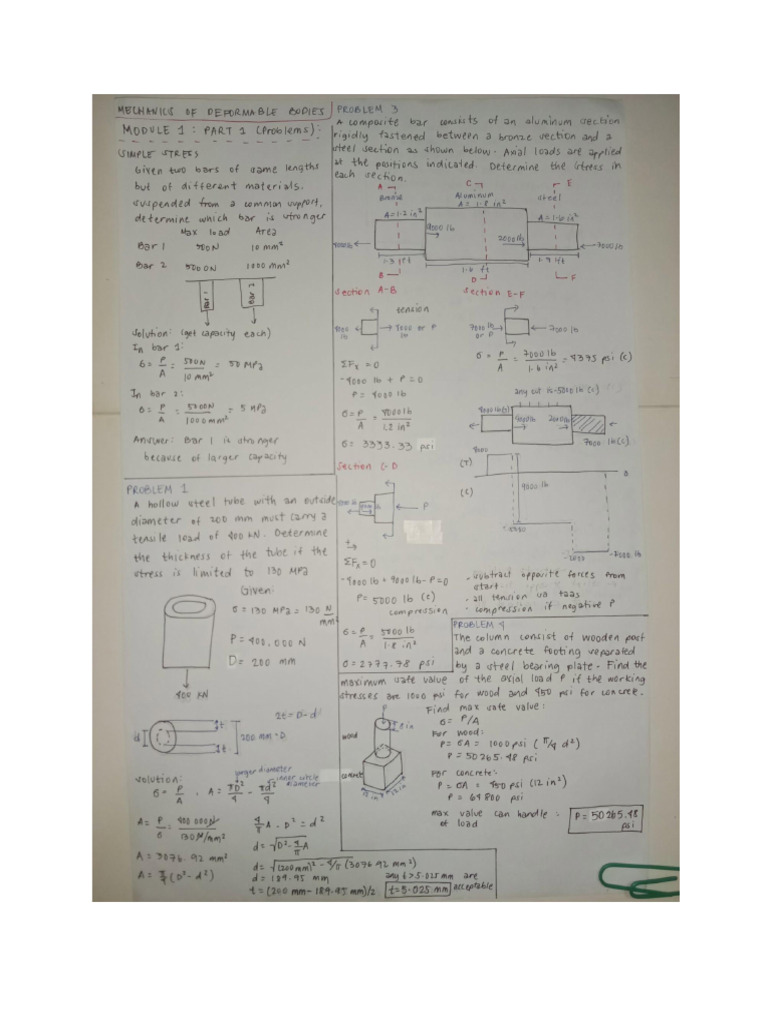 MECHANICS OF DEFORMABLE BODIES
MODULE 1 : PART 1 (Problems):
SIMPLE STRESS
Given two bars of same lengths
but of different materials.
suspended from a common support,
determine which bar is stronger
Max load Area
Bar 1 500N 10 mm²
Bar 2 5000N 1000 mm²
Bar 1
Bar 2
solution: (get capacity each)
In bar 1:
σ = P/A = 500N/10 mm² = 50 MPa
In bar 2:
σ = P/A = 5000N/1000 mm² = 5 MPa
Answer: Bar 1 is stronger
because of larger capacity
PROBLEM 2
A hollow steel tube with an outside
diameter of 200 mm must carry a
tensile load of 400 kN. Determine
the thickness of the tube if the
stress is limited to 130 MPa
Given:
σ = 130 MPa = 130 N/mm²
P = 400,000 N
D = 200 mm
400 kN
2t = D-d
d
t
t
200 mm = D
solution:
larger diameter
inner circle diameter
σ = P/A , A = πD²/4 - πd²/4
A = P/σ = 400 000N/130 N/mm²
A = 3076.92 mm²
A = π/4 (D² - d²)
4/π A - D² = d²
d = √D² - 4/π A
d = √(200mm)² - 4/π (3076.92 mm²)
d = 189.95 mm
t = (200 mm - 189.95 mm)/2
t = 5.025 mm
any t > 5.025 mm are
acceptable
PROBLEM 3
A composite bar consists of an aluminum section
rigidly fastened between a bronze section and a
steel section as shown below. Axial loads are applied
at the positions indicated. Determine the stress in
each section.
A C E
Bronze Aluminum steel
A = 1.2 in² A = 1.8 in² A = 1.6 in²
4000 lb 9000 lb 2000 lb 7000 lb
1.3 ft 1.6 ft 1.7 ft
B D F
section A-B
tension
4000 lb
4000 or P
ΣFx = 0
-4000 lb + P = 0
P = 4000 lb
σ = P/A = 4000 lb/1.2 in²
σ = 3333.33 psi
Section C-D
P
ΣFx = 0
-4000 lb + 9000 lb - P = 0
P = 5000 lb (c)
compression
σ = P/A = 5000 lb/1.8 in²
σ = 2777.78 psi
section E-F
7000 lb or P
7000 lb
σ = P/A = 7000 lb/1.6 in² = 4375 psi (c)
any cut is -5000 lb (c)
4000 lb (T)
9000 lb 2000 lb
7000 lb (c)
4000
(T)
(C)
0
9000 lb
-5000
-7000 lb
- subtract opposite forces from
start
- all tension sa taas
- compression if negative P
PROBLEM 4
The column consist of wooden post
and a concrete footing separated
by a steel bearing plate. Find the
maximum safe value of the axial load P if the working
stresses are 1000 psi for wood and 450 psi for concrete.
P
8 in
wood
concrete
12 in
12 in
Find max safe value:
σ = P/A
For wood:
P = σA = 1000 psi (π/4 d²)
P = 50265.48 psi
For concrete:
P = σA = 450 psi (12 in²)
P = 64800 psi
max value can handle :
of load
P = 50265.48
psi